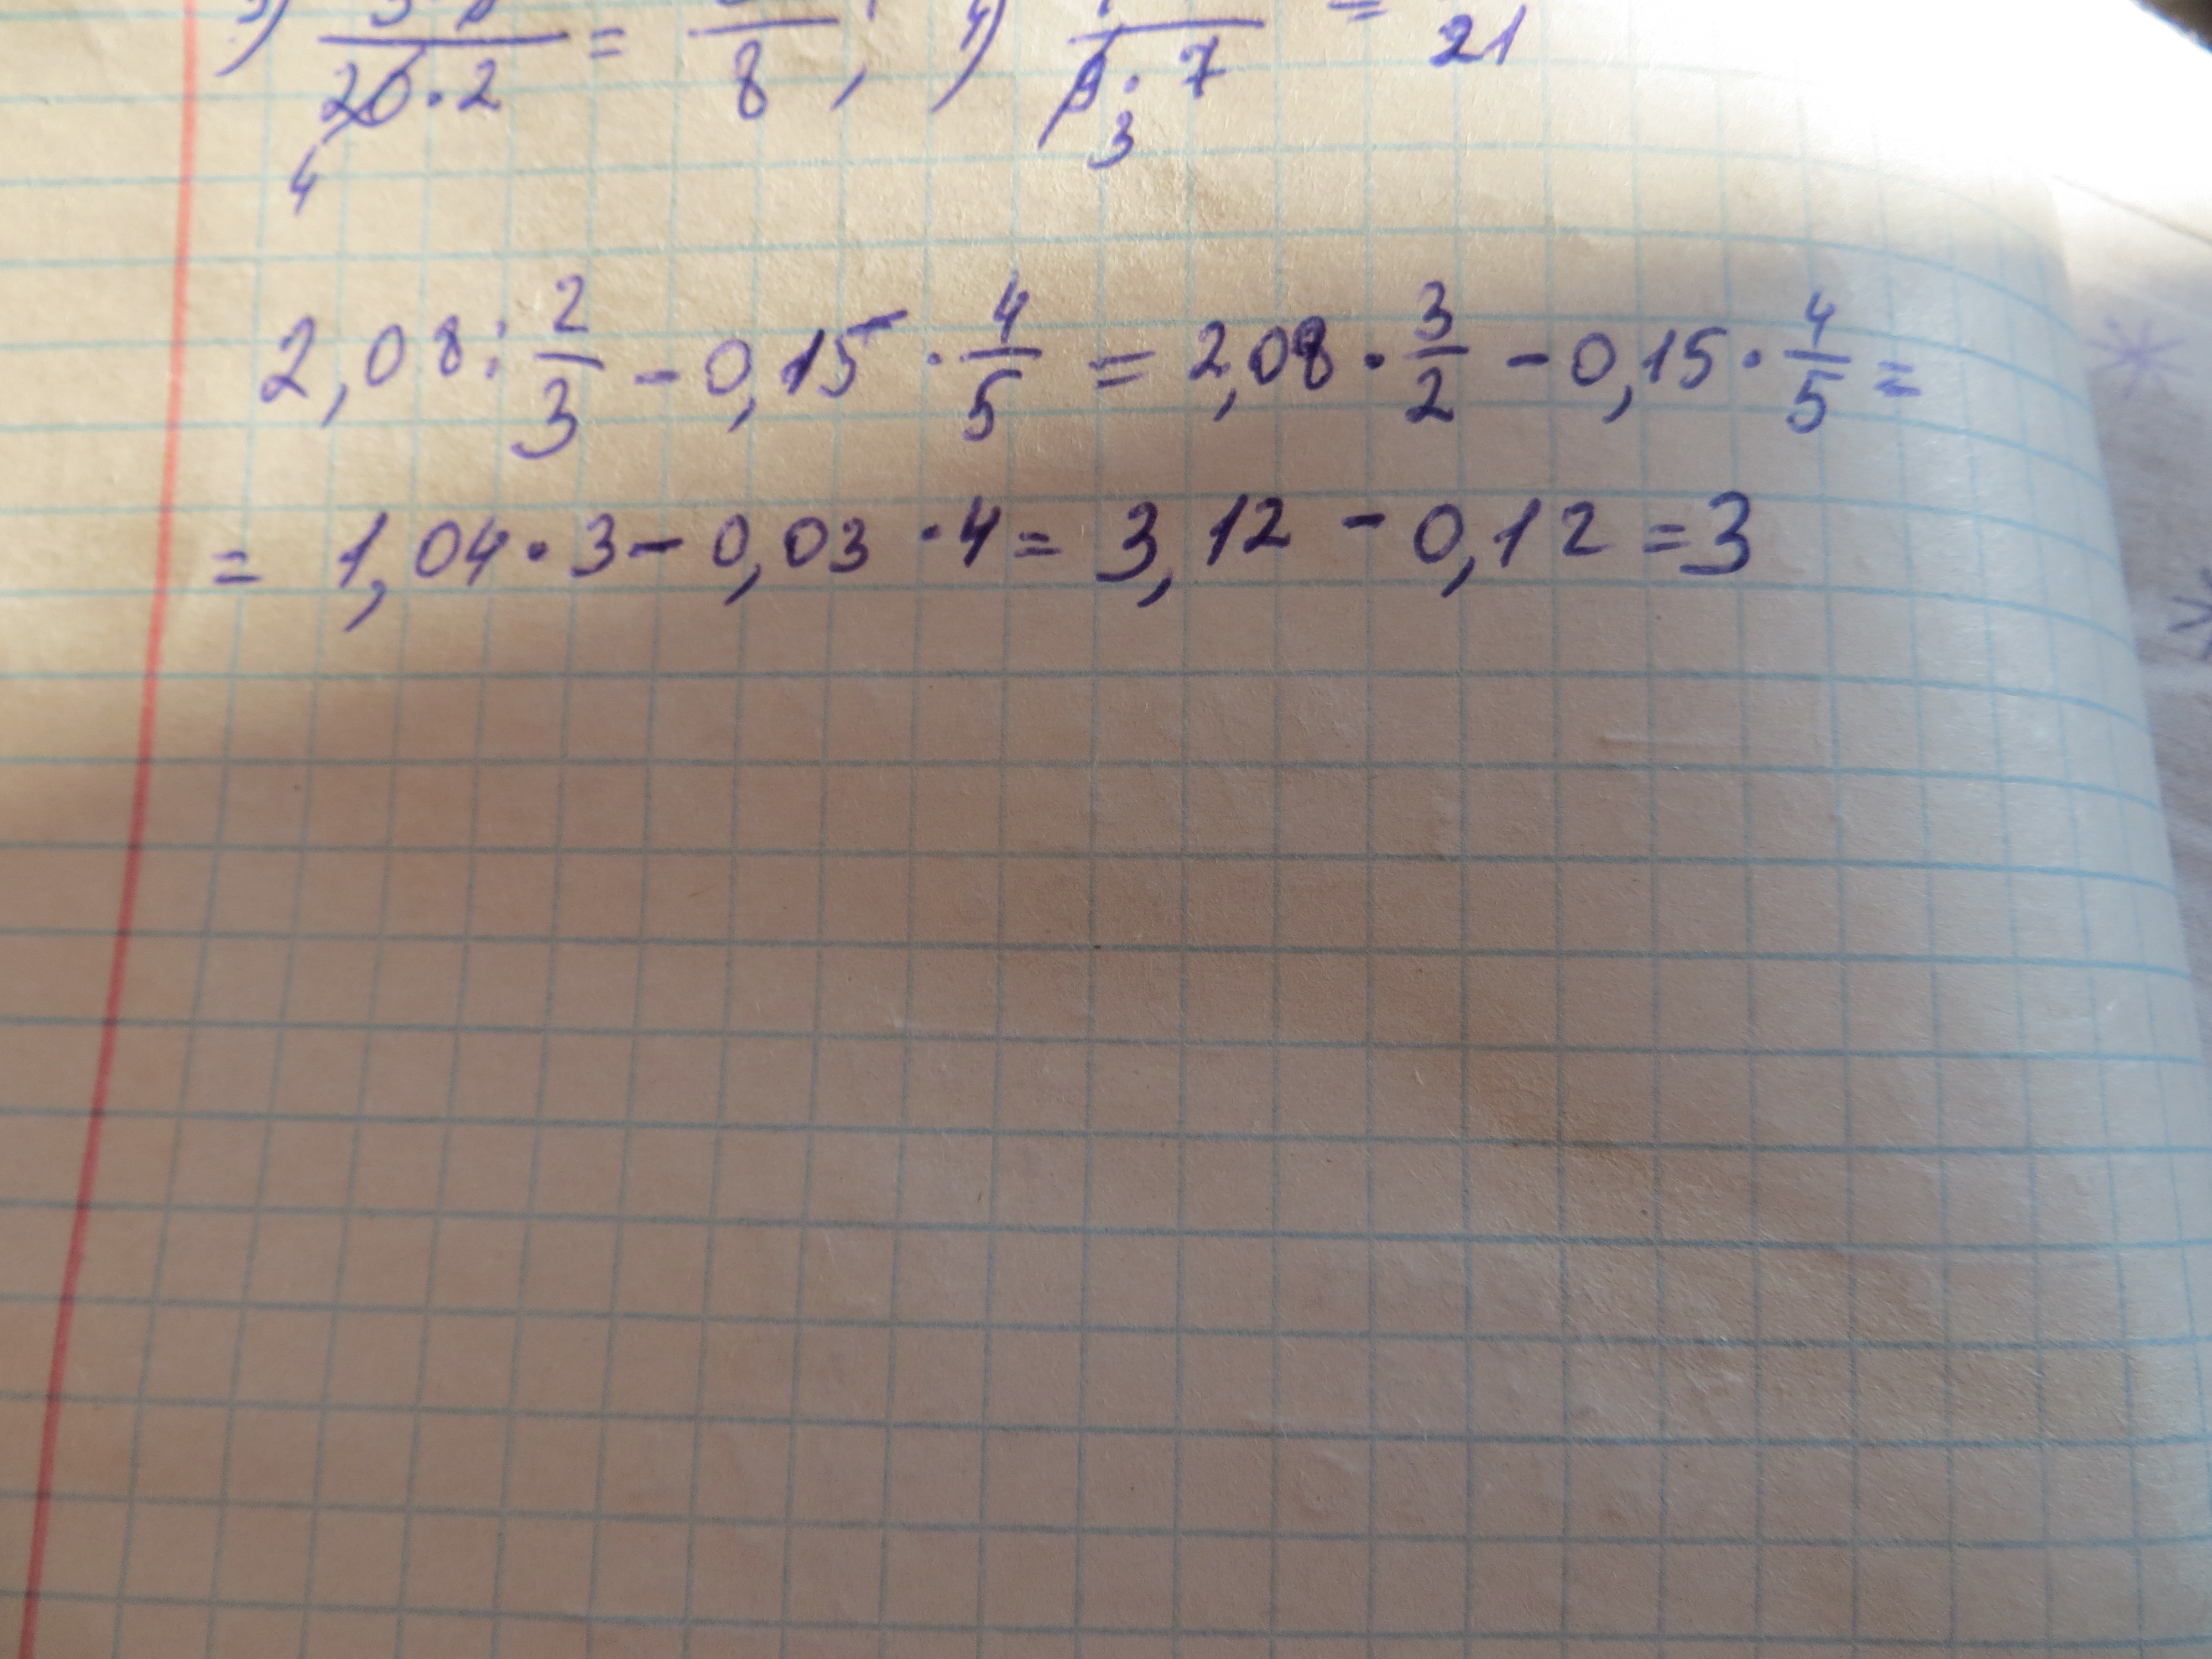 20·2 = 8 ; 4) 9·7 = 21
4 3
2,08 : 2/3 - 0,15 · 4/5 = 2,08 · 3/2 - 0,15 · 4/5 =
= 1,04 · 3 - 0,03 · 4 = 3,12 - 0,12 = 3